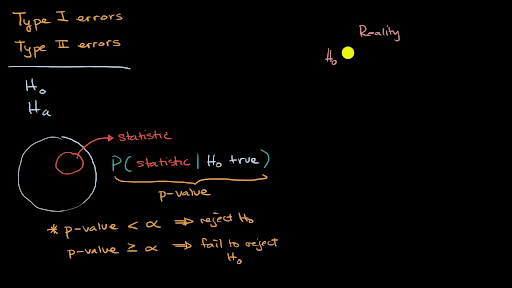 Type I errors
Type II errors
H₀
Hₐ
statistic
P( statistic | H₀ true )
p-value
* p-value < α ⇒ reject H₀
p-value ≥ α ⇒ fail to reject
H₀
Reality
H₀